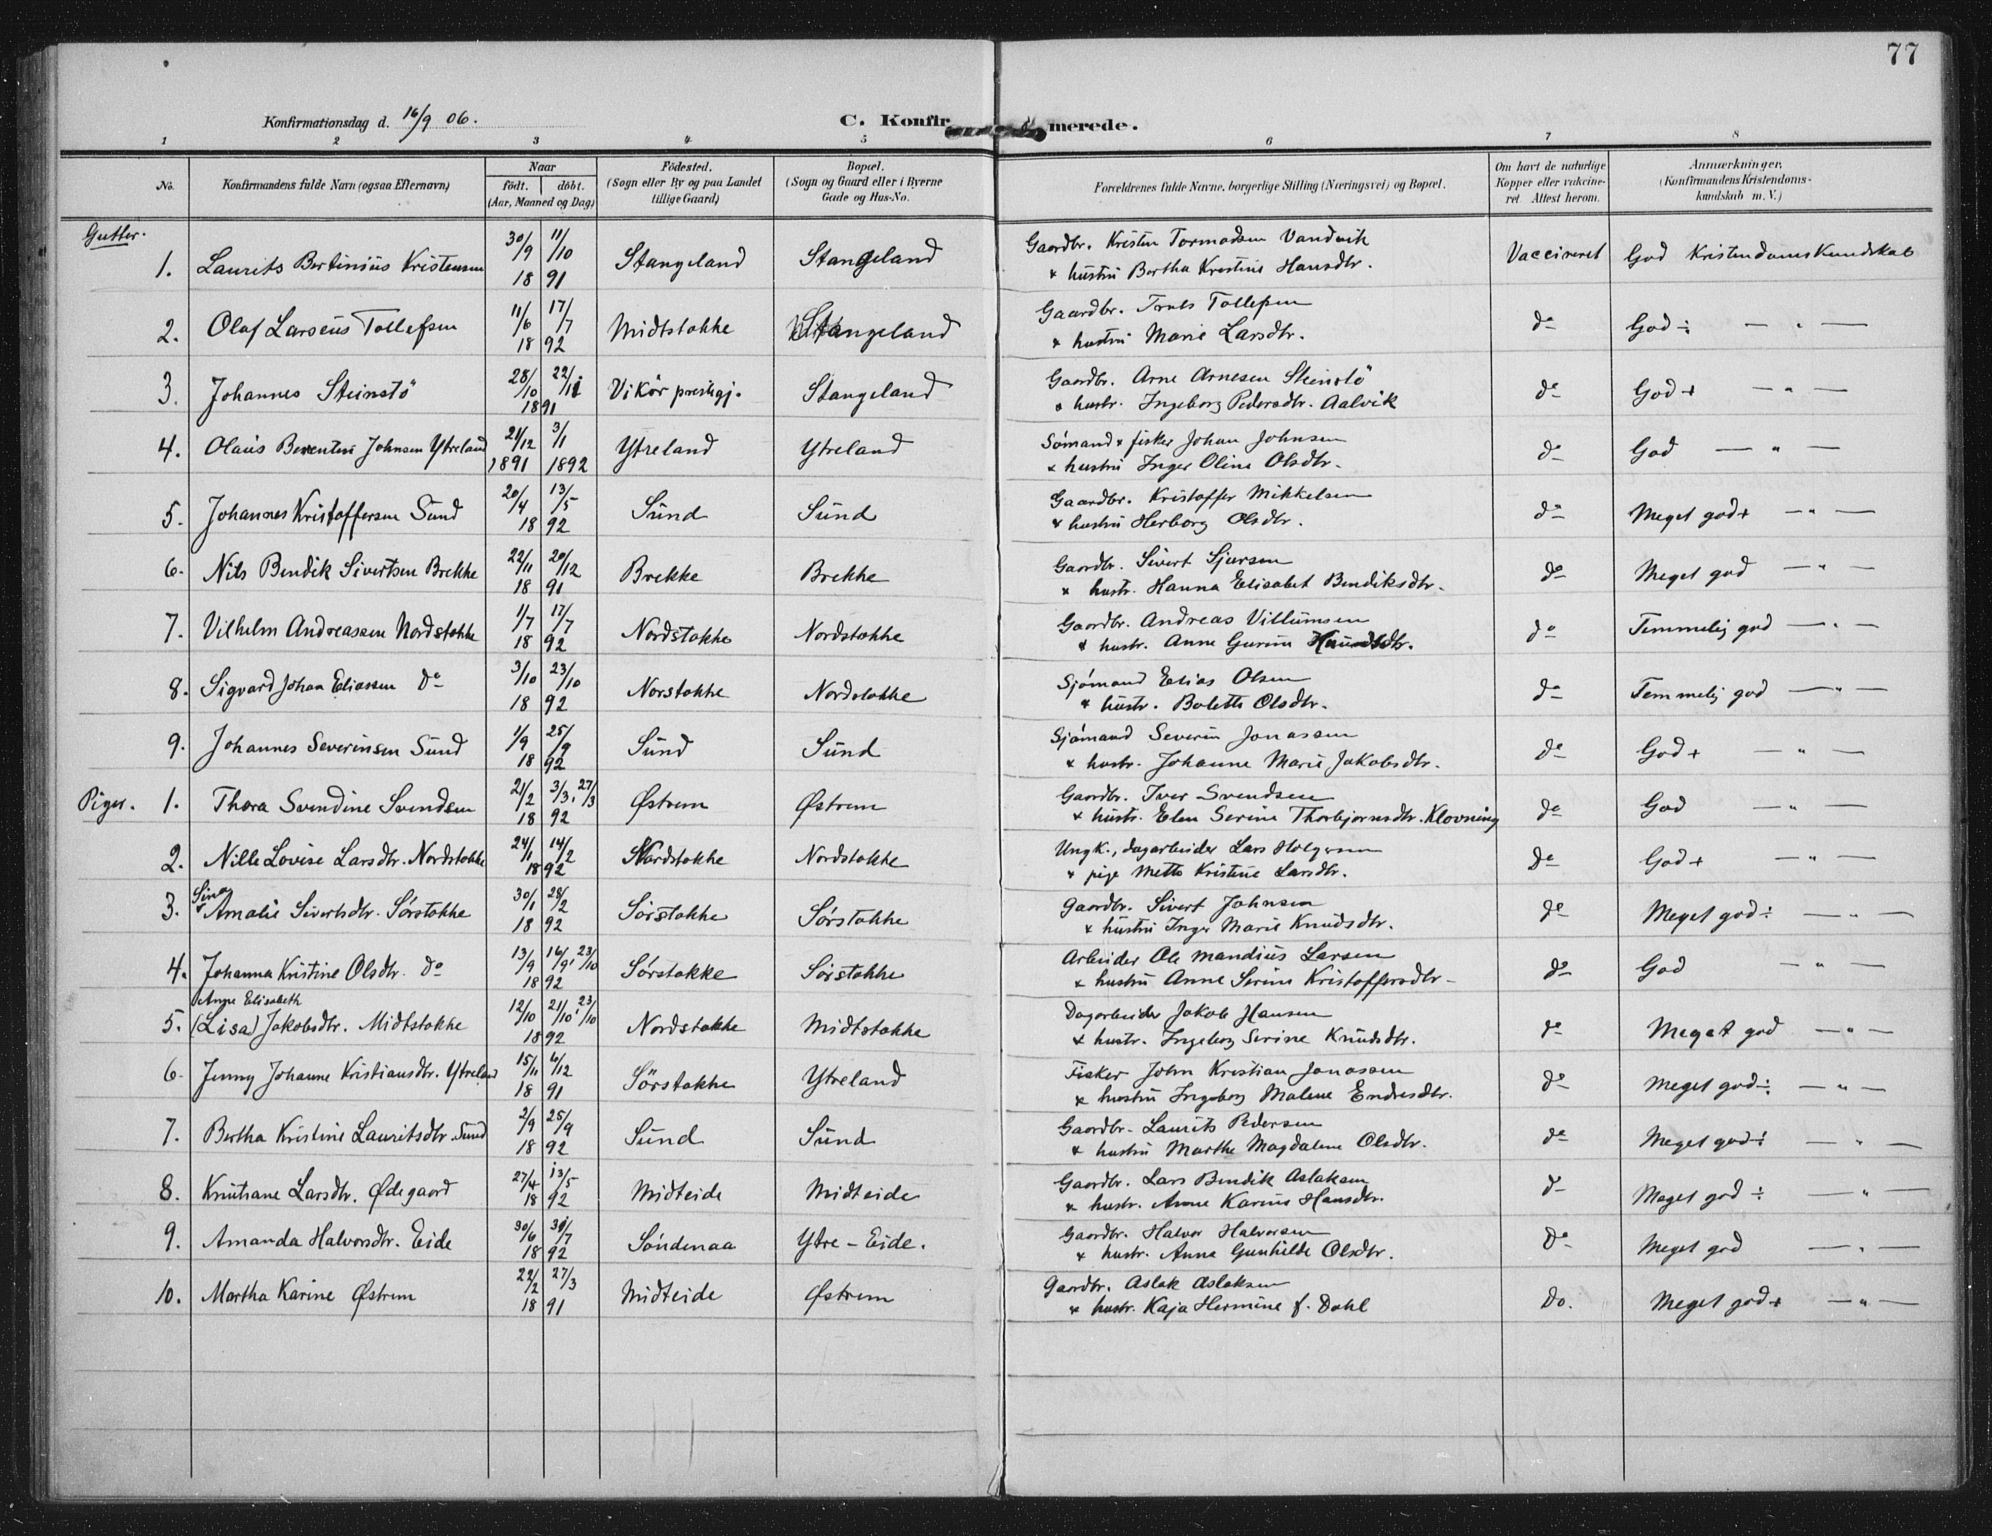 77
Konfirmationsdag d. 16/9 06.
C. Konfirmerede.
1 2 3 4 5 6 7 8
No. Konfirmandens fulde Navn (ogsaa Efternavn) Naar födt. döbt. (Aar, Maaned og Dag) Födested. (Sogn eller By og paa Landet tillige Gaard) Bopæl. (Sogn og Gaard eller i Byerne Gade og Hus-No. Forældrenes fulde Navne, borgerlige Stilling (Næringsvei) og Bopæl. Om havt de naturlige Kopper eller vakcineret. Attest herom. Anmærkninger. (Konfirmandens Kristendomskundskab m. V.)
Gutter.
1. Laurits Bertinius Kristensen 30/9 11/10 1891 Stangeland Stangeland Gaardbr. Kristen Tormodsen Vandvik
& hustru Bertha Kristine Hansdtr. Vaccineret God Kristendomskundskab
2. Olaf Larseus Tollefsen 11/6 17/7 1892 Midtstokke Stangeland Gaardbr. Truls Tollefsen
& hustru Marie Larsdtr. do God ÷ — " —
3. Johannes Steinstö 28/10 22/11 1891 Vikör prestegj. Stangeland Gaardbr. Arne Arnesen Steinstö
& hustr. Ingeborg Pedersdtr. Aalvik do God + — " —
4. Olaus Berentin Johnsen Ytreland 21/12 1891 3/1 1892 Ytreland Ytreland Sømand & fisker Johan Johnsen
& hustru Inger Oline Olsdtr. do God — " —
5. Johannes Kristoffersen Sund 20/4 13/5 1892 Sund Sund Gaardbr. Kristoffer Mikkelsen
& hustru Herborg Olsdtr. do Meget god + — " —
6. Nils Bendik Sivertsen Brekke 22/11 20/12 1891 Brekke Brekke Gaardbr. Sivert Sjursen
& hustr. Hanna Elisabet Bendiksdtr. do Meget god — " —
7. Vilhelm Andreassen Nordstokke 1/7 17/7 1892 Nordstokke Nordstokke Gaardbr. Andreas Villumsen
& hustr. Anne Gurine do Temmelig god — " —
8. Sigvard Johan Eliassen do 3/10 23/10 1892 Norstokke Nordstokke Sjömand Elias Olsen
& hustr. Bolette Olsdtr. do Temmelig god — " —
9. Johannes Severinsen Sund 1/9 25/9 1892 Sund Sund Sjömand Severin Jonassen
& hustr. Johanne Marie Jakobsdtr. do God + — " —
Piger. 1. Thora Svendine Svendsen 21/2 3/3, 27/3 1892 Østrem Østrem Gaardbr. Iver Svendsen
& hustr. Elen Serine Thorbjørnsdtr. Klovning do God — " —
2. Nille Lovise Larsdtr. Nordstokke 24/1 14/2 1892 Nordstokke Nordstokke Ungk., dagarbeider Lars Holgersen
& pige Mette Kristine Larsdtr. do God + — " —
3. Sina Amalie Sivertsdtr. Sørstokke 30/1 28/2 1892 Sørstokke Sørstokke Gaardbr. Sivert Johnsen
& hustru Inger Marie Knudsdtr. do Meget god ÷ — " —
4. Johanna Kristine Olsdtr. do 13/9 16/9, 23/10 1892 Sørstokke Sørstokke Arbeider Ole Mandius Larsen
& hustru Anne Serine Kristoffersdtr. do God — " —
5. Anne Elisabeth
(Lisa) Jakobsdtr. Midtstokke 12/10 21/10, 23/10 1892 Nordstokke Midtstokke Dagarbeider Jakob Hansen
& hustr. Ingeborg Serine Knudsdtr. do Meget god — " —
6. Jenny Johanne Kristiansdtr. Ytreland 15/11 6/12 1891 Sörstokke Ytreland Fisker John Kristian Jonassen
& hustru Ingeborg Malene Endresdtr. do Meget god ÷ — " —
7. Bertha Kristine Lauritsdtr. Sund 2/9 25/9 1892 Sund Sund Gaardbr. Laurits Pedersen
& hustru Marthe Magdalene Olsdtr. do Meget god ÷ — " —
8. Knutiane Larsdtr. Ødegaard 27/4 13/5 1892 Midteide Midteide Gaardbr. Lars Bendik Aslaksen
& hustr. Anne Karine Hansdtr. do Meget god ÷ — " —
9. Amanda Halvorsdtr. Eide 30/6 1892 Söndenaa Ytre-Eide. Gaardbr. Halvor Halvorsen
& hustr. Anna Gunhilde Olsdtr. Do Meget god — " —
10. Martha Karine Østrem 22/2 27/3 1891 Midteide Østrem Gaardbr. Aslak Aslaksen
& hustr. Kaja Hermine f. Dahl Do. Meget god + — " —